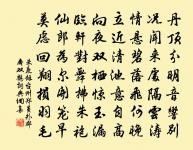 丹頂分明音響別
況聞來處隔雲濤
情懸碧落飛何晚
立近清池意自高
向夜雙棲驚玉漏
臨軒對舞拂朱袍
仙郎為爾開籠早
莫慮回翔損羽毛
朱慶餘台州鄭員外郡
齋雙鶴詞典網集